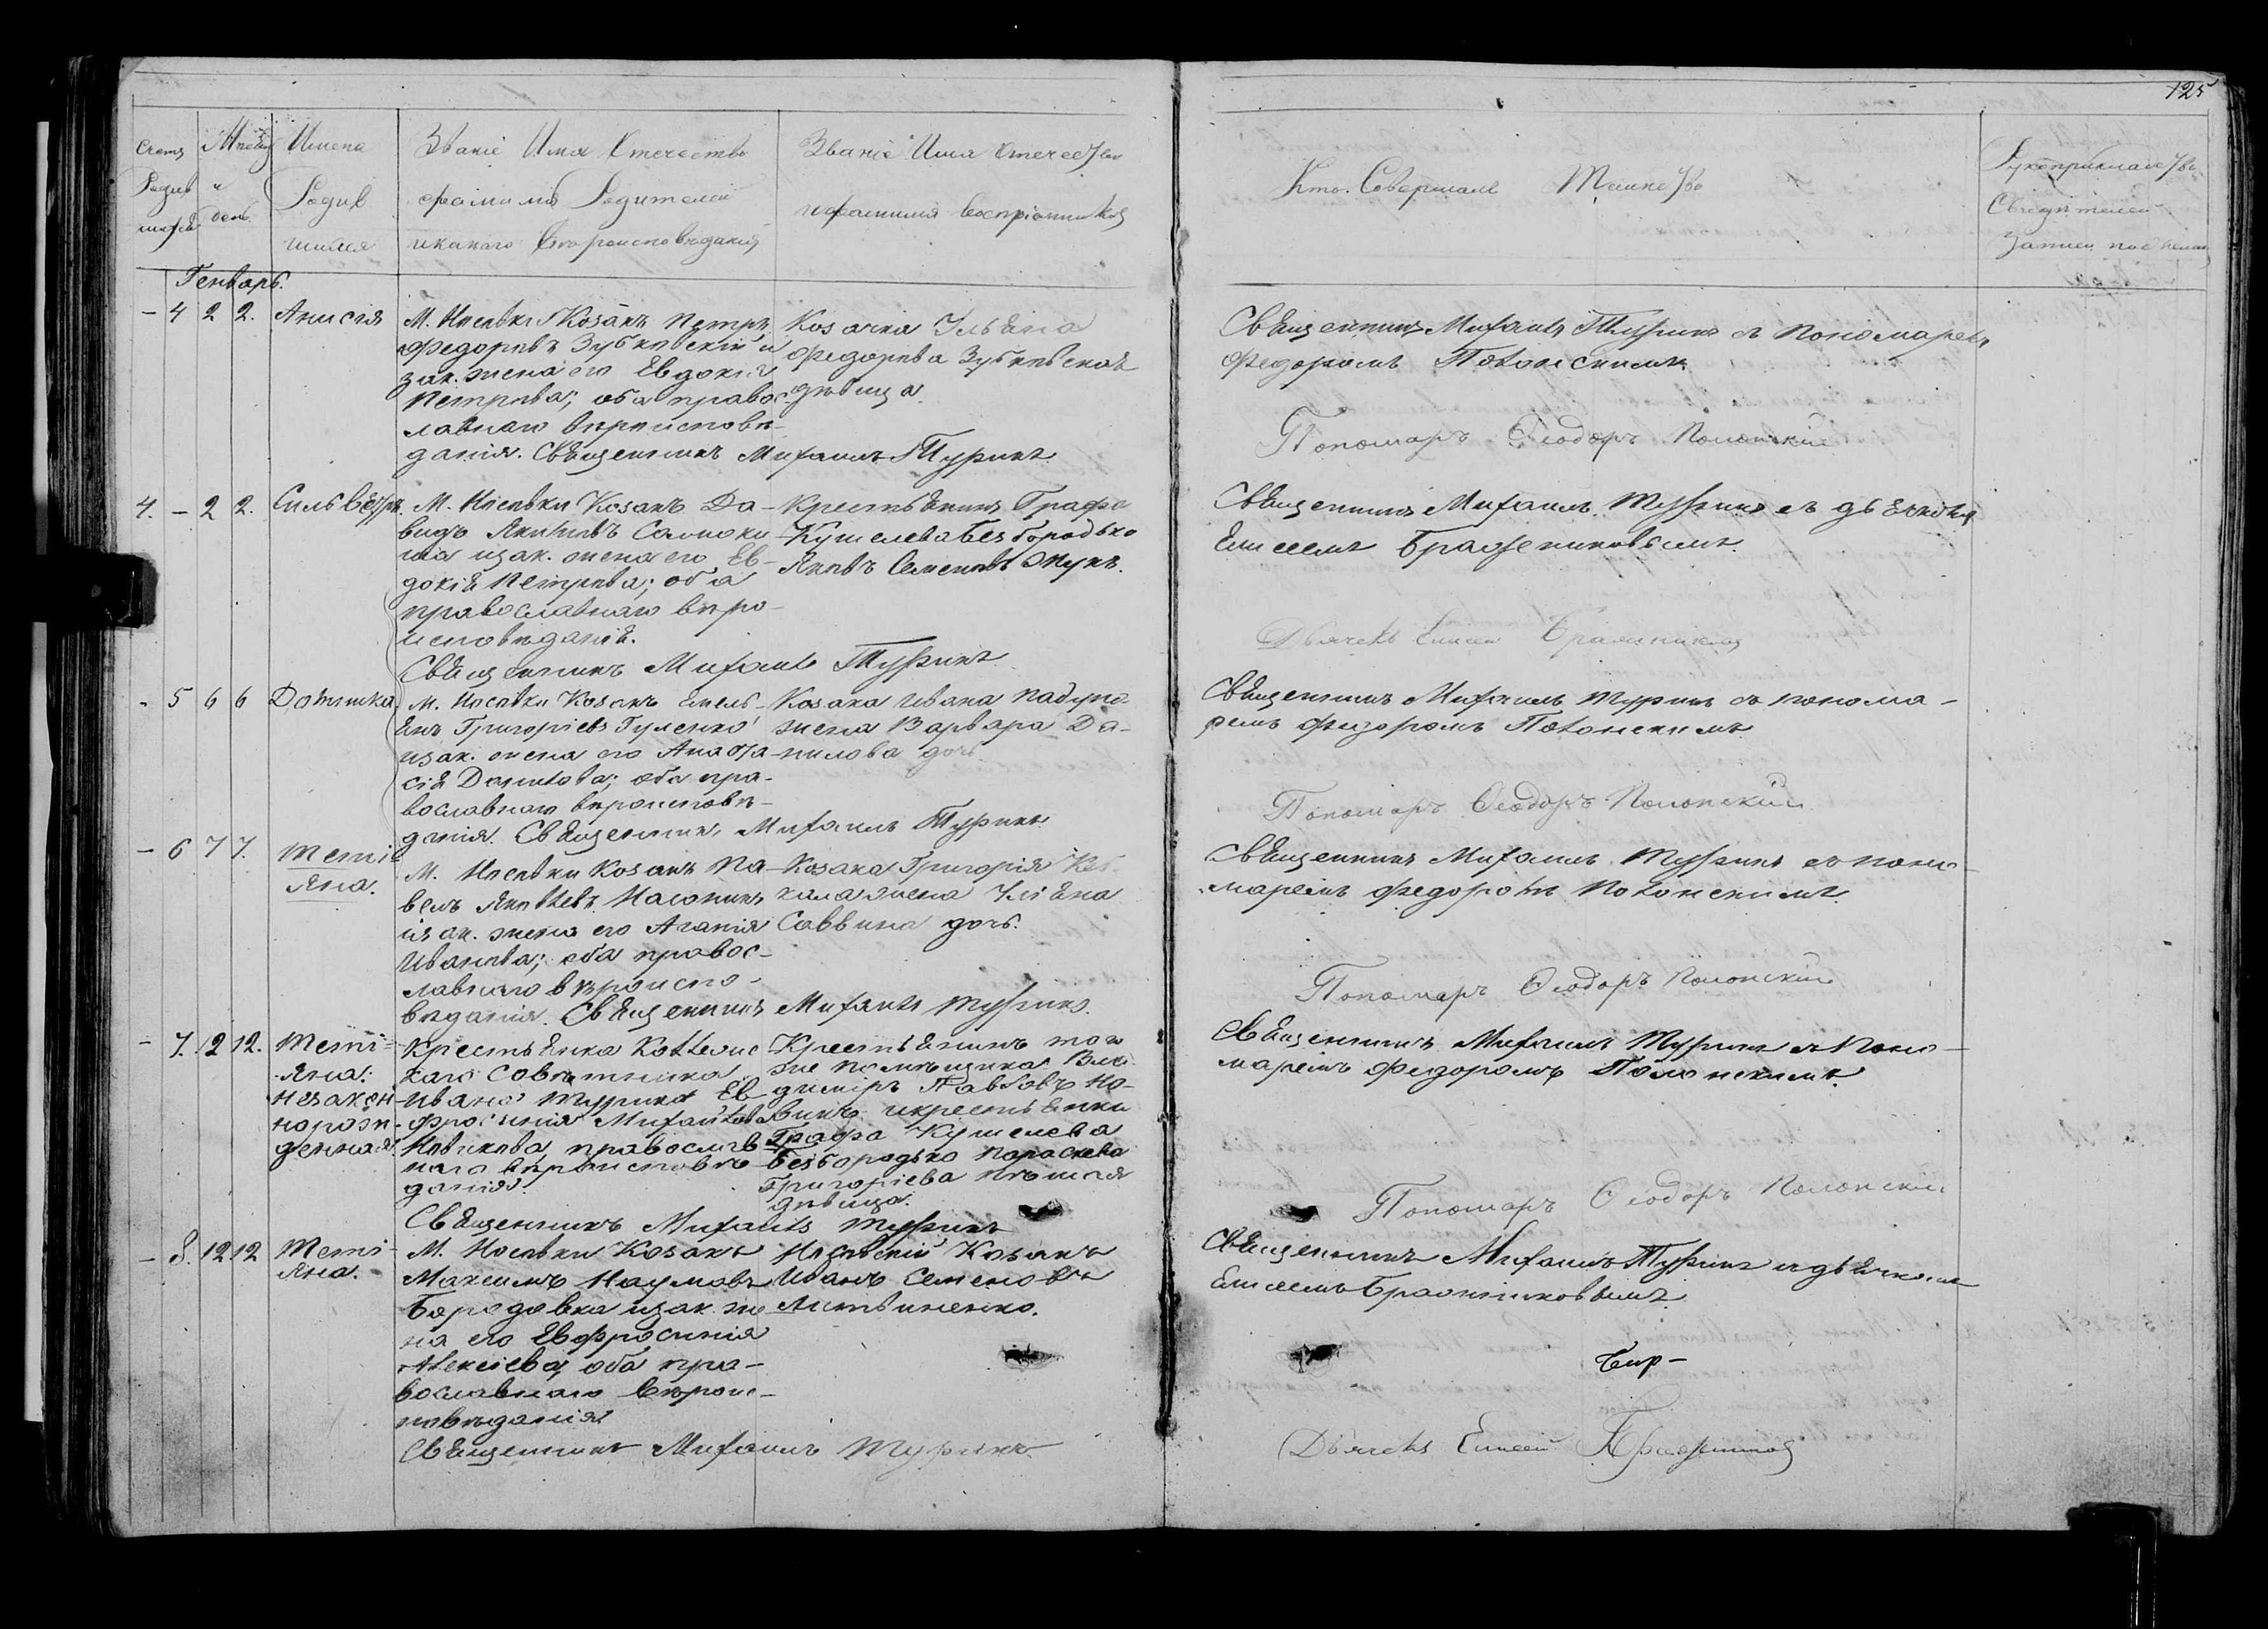 125
Счетъ Родив шихся
Мѣсяцъ и день
Имена Родив шихся
Званіе Имя Отечество фамилія Родителей и какаго Вѣроисповѣданія
Званіе Имя Отечество и фамилія Воспріемниковъ
Кто Совершалъ Таинство
Рукоприкладство Свидѣтелей записи по желан
Генварь.
- 4 2 2. Анисія
М. Носовки Козакъ Петръ
Федоровъ Зубковскій и
зак. жена его Евдокія
Петрова; оба правос-
лавнаго вѣроисповѣ-
данія. Священникъ Михаилъ Туринъ
Козачка Ульяна
Федорова Зубковская
дѣвица
Священникъ Михаилъ Туринъ съ Пономаремъ
Федоромъ Полонскимъ
Пономарь Ѳеодоръ Полонскій
4. - 2 2. Сильвестръ.
М. Носовки Козакъ Да-
видъ Якововъ
и зак. жена его Ев-
докія Петрова; оба
православнаго вѣро-
исповѣданія.
Священникъ Михаилъ Туринъ
Крестьянинъ Графа
Кушелева Безбородько
Яковъ Семеновъ
Священникъ Михаилъ Туринъ съ дьячкомъ
Елисеемъ Бражниковымъ.
Дьячекъ Елисей Бражниковъ
- 5 6 6 Домникія
М. Носовки Козакъ Емель-
янъ Григоріевъ Гуленко
и зак. жена его Анаста-
сія Данилова; оба пра-
вославнаго вѣроисповѣ-
данія. Священникъ Михаилъ Туринъ
Козака Ивана
жена Варвара Да-
нилова дочь
Священникъ Михаилъ Туринъ съ понома-
ремъ Федоромъ Полонскимъ
Пономарь Ѳеодоръ Полонскій
- 6 7 7. Теті-
яна.
М. Носовки Козакъ Па-
велъ Яковлевъ Насоникъ
и зак. жена его Агапія
Иванова; оба правос-
лавнаго вѣроиспо-
вѣданія. Священникъ Михаилъ Туринъ.
Козака Григорія
жена Уліяна
Саввина дочь.
Священникъ Михаилъ Туринъ съ поно-
маремъ Федоромъ Полонскимъ.
Пономарь Ѳеодоръ Полонскій
- 7. 12 12. Теті-
яна:
незакон-
норож-
денная.
Крестьянка Коллежс
каго Совѣтника
Ивана Турина Ев
фросинія Михайлова
Новикова, православ
наго вѣроисповѣ
данія.
Священникъ Михаилъ Туринъ
Крестьянинъ того
же помѣщика Вла
диміръ Павловъ Но-
викъ и крестьянка
Графа Кушелева
Безбородько Параскева
Григоріева
дѣвица.
Священникъ Михаилъ Туринъ съ Поно-
маремъ Федоромъ Полонскимъ.
Пономарь Ѳеодоръ Полонскій
- 8. 12 12 Теті-
яна.
М. Носовки Козакъ
Максимъ Наумовъ
Бородовка и зак. же
на его Евфросинія
Алексіева, оба пра-
вославнаго вѣроис-
повѣданія
Священникъ Михаилъ Туринъ
Носовскій Козакъ
Иванъ Семеновъ
Литвиненко.
Священникъ Михаилъ Туринъ и дьячкомъ
Елисеемъ Бражниковымъ.
Дьячекъ Елисей Бражниковъ